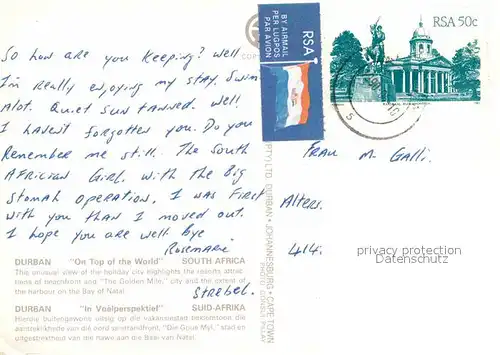 So how are you keeping? Well
I'm really enjoying my stay. Swim
Alot. Quiet sun tanned. Well
I havent forgotten you. Do you
Remember me still. The South
African Girl. with the big
stomah operation. I was first
with you than I moved out.
I hope you are well bye
Rosemarie
Strebel.
DURBAN "On Top of the World" SOUTH AFRICA
This unusual view of the holiday city highlights the resorts attrac-
tions of beachfront and "The Golden Mile," city and the extent of
the harbour on the Bay of Natal
DURBAN "In Voëlperspektief" SUID-AFRIKA
Hierdie buitengewone uitsig op die vakansiestad beklemtoon die
aantreklikhede van die oord
"Die Goue Myl," stad en
uitgestrektheid van die hawe aan die Baai van Natal
BY AIRMAIL
PER LUGPOS
PAR AVION
RSA
RSA 50c
(PTY) LTD. DURBAN • JOHANNESBURG • CAPE TOWN
PHOTO:
Frau M. Galli.
Alters.
414.
privacy protection
Datenschutz